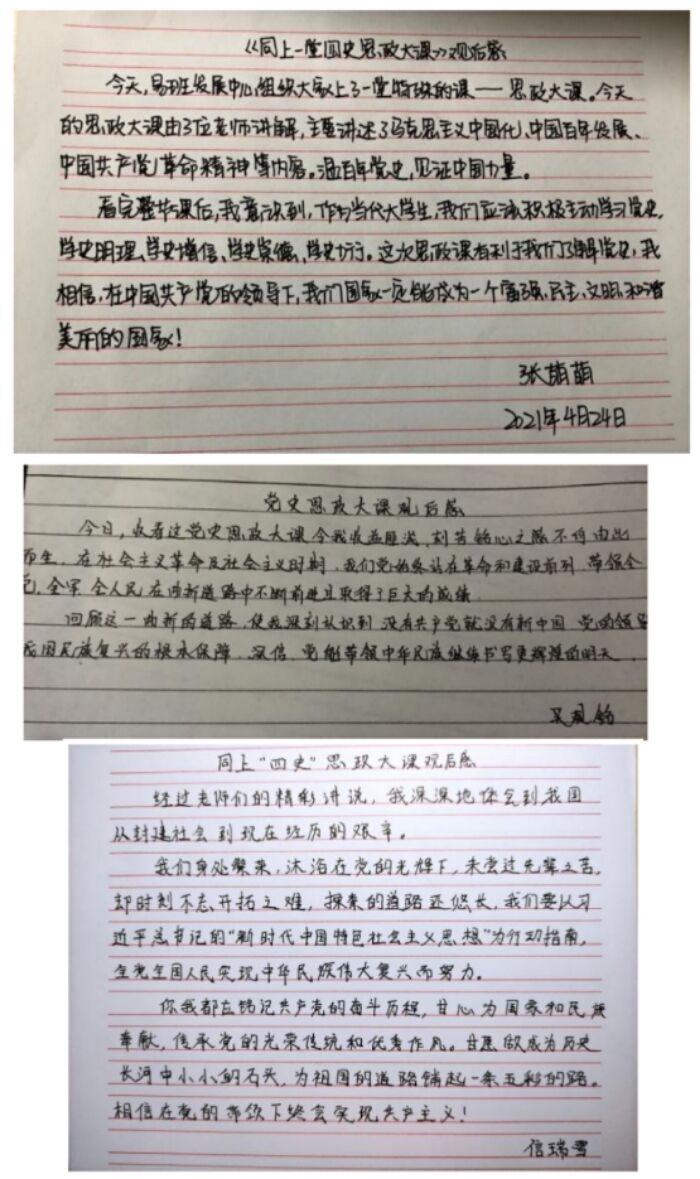 《同上一堂四史思政大课》观后感
今天,易班发展中心组织大家上了一堂特殊的课——思政大课。今天
的思政大课由3位老师讲解,主要讲述了马克思主义中国化、中国百年发展、
中国共产党革命精神等内容。温百年党史,见证中国力量。
看完整节课后,我意识到,作为当代大学生,我们应该积极主动学习党史,
学史明理、学史增信、学史崇德、学史力行。这次思政课有利于我们了解党史,我
相信,在中国共产党的领导下,我们国家一定能成为一个富强、民主、文明、和谐
美丽的国家!
张萌萌
2021年4月24日
党史思政大课观后感
今日,收看这党史思政大课令我收益匪浅,刻苦铭心之感不由由
而生,在社会主义革命及社会主义时期,我们党始终站在革命和建设前列,带领全
党,全军,全人民在曲折道路中不断前进且取得了巨大的成绩.
回顾这一曲折的道路,使我深刻认识到,没有共产党就没有新中国,党的领导
我国民族复兴的根本保障,深信,党能带领中华民族继续书写更辉煌的明天.
吴
同上“四史”思政大课观后感
经过老师们的精彩讲说,我深深地体会到我国
从封建社会到现在经历的艰辛。
我们身处繁荣,沐浴在党的光辉下,未尝过先辈之苦,
却时刻不忘开拓之难,探索的道路还悠长,我们要以习
近平总书记的“新时代中国特色社会主义思想”为行动指南,
全党全国人民实现中华民族伟大复兴而努力。
你我都在铭记共产党的奋斗历程,甘心为国家和民族
奉献,传承党的光荣传统和优秀作风。甘愿做成为历史
长河中小小的石头,为祖国的道路铺起一条五彩的路。
相信在党的带领下终会实现共产主义!
信瑞雪